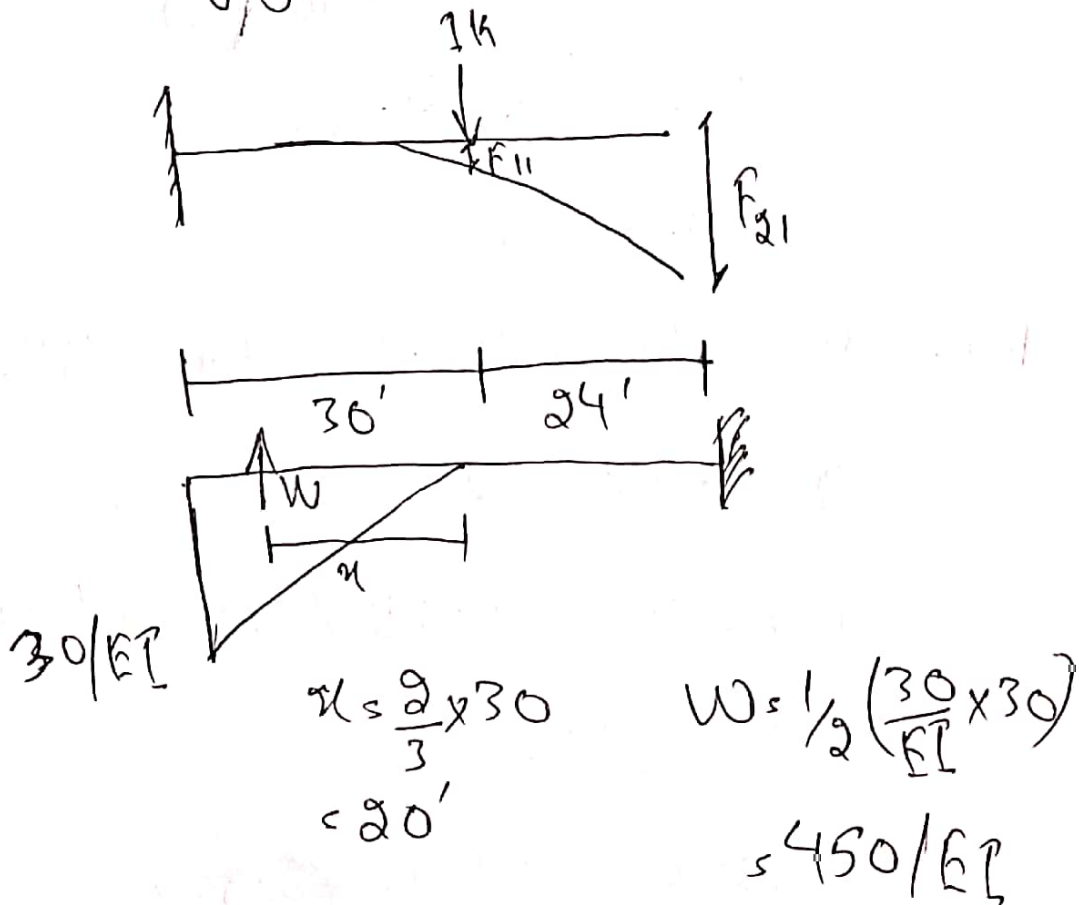 1k
F11
F21
30' 24'
W
x
30/EI
x = 2/3 x 30 W = 1/2 (30/EI x 30)
= 20' = 450/EI